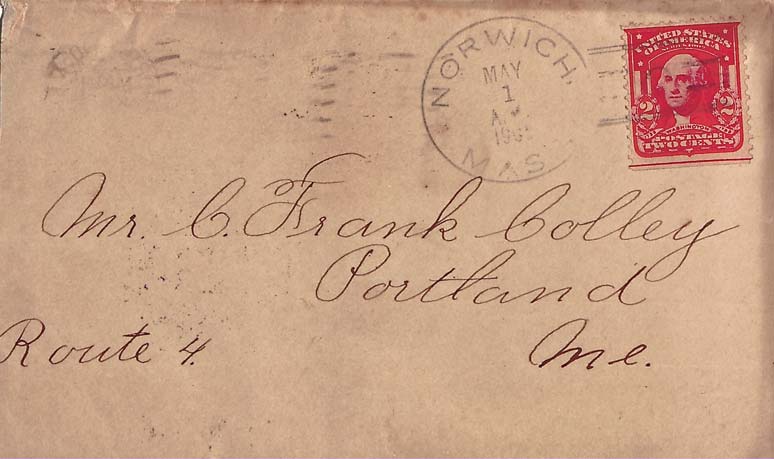 NORWICH,
MAY
1
UNITED STATES
OF AMERICA
SERIES 1902
2 2
1732 WASHINGTON 1799
POSTAGE
TWO CENTS
Mr. C. Frank Colley
Portland
Route 4. Me.